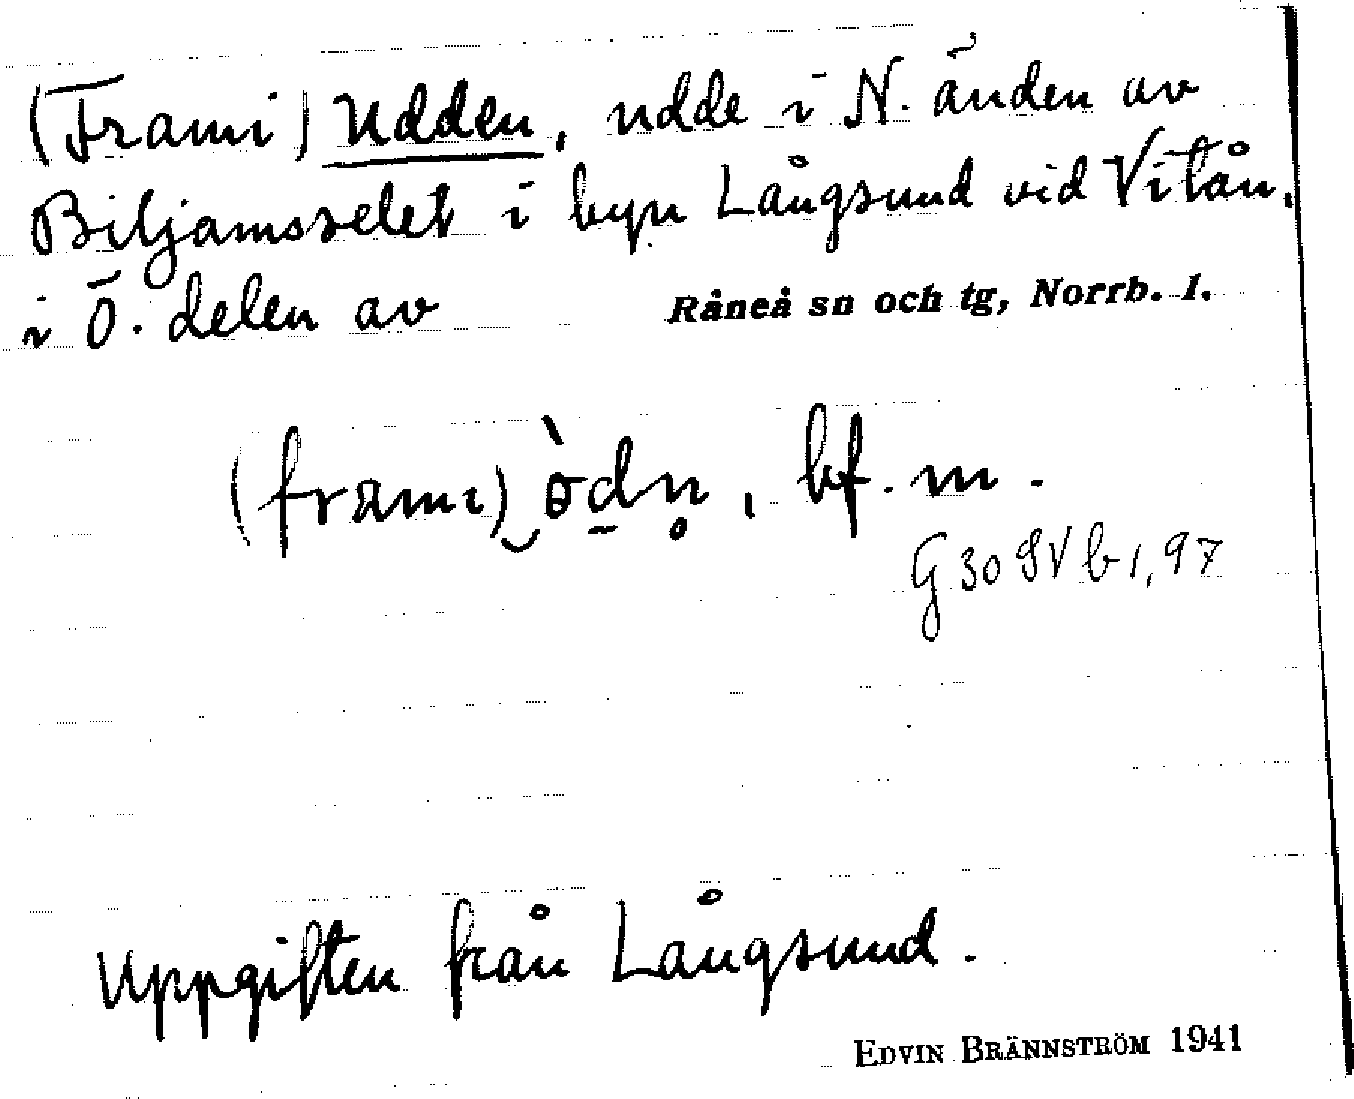 (Frami) Udden, udde i N. änden av
Biljamsselet i byn Långsund vid Vitån.
i Ö. delen av Råneå sn och tg, Norrb. l.
(frami) òdn̥, bf. m.
G 30 SV b 1, 97
Uppgiften från Långsund.
EDVIN BRÄNNSTRÖM 1941